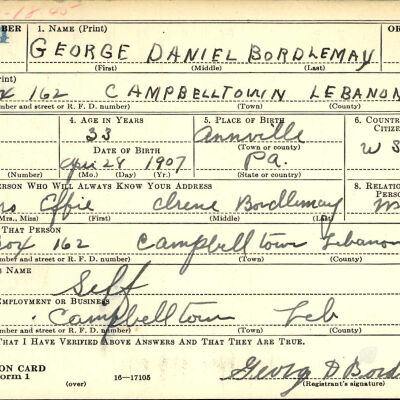 -18-45
BER 1. NAME (Print) OR
GEORGE DANIEL BORDLEMAY
(First) (Middle) (Last)
rint)
X 162 CAMPBELLTOWN LEBANON
umber and street or R. F. D. number) (Town) (County)
4. AGE IN YEARS 5. PLACE OF BIRTH 6. COUNTR
33 Annville CITIZE
DATE OF BIRTH (Town or county)
24 1907 Pa. U S
(Mo.) (Day) (Yr.) (State or country)
ERSON WHO WILL ALWAYS KNOW YOUR ADDRESS 8. RELATION
rs Effie Irene Bordlemay
Mrs., Miss) (First) (Middle) (Last)
THAT PERSON
Box 162 Campbelltown Lebanon
mber and street or R. F. D. number) (Town) (County)
S NAME
Self
EMPLOYMENT OR BUSINESS
Campbelltown Leb
mber and street or R. F. D. number) (Town) (County)
THAT I HAVE VERIFIED ABOVE ANSWERS AND THAT THEY ARE TRUE.
ON CARD Georg D Bord
orm 1 (over) 16—17105 (Registrant's signature)